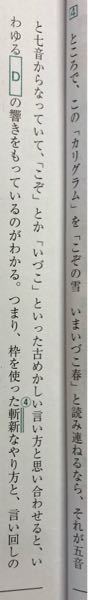 4 ところで、この「カリグラム」を「こぞの雪　いまいづこ春」と読み連ねるなら、それが五音
と七音からなっていて、「こぞ」とか「いづこ」といった古めかしい言い方と思い合わせると、い
わゆる D の響きをもっているのがわかる。つまり、枠を使った④斬新なやり方と、言い回しの